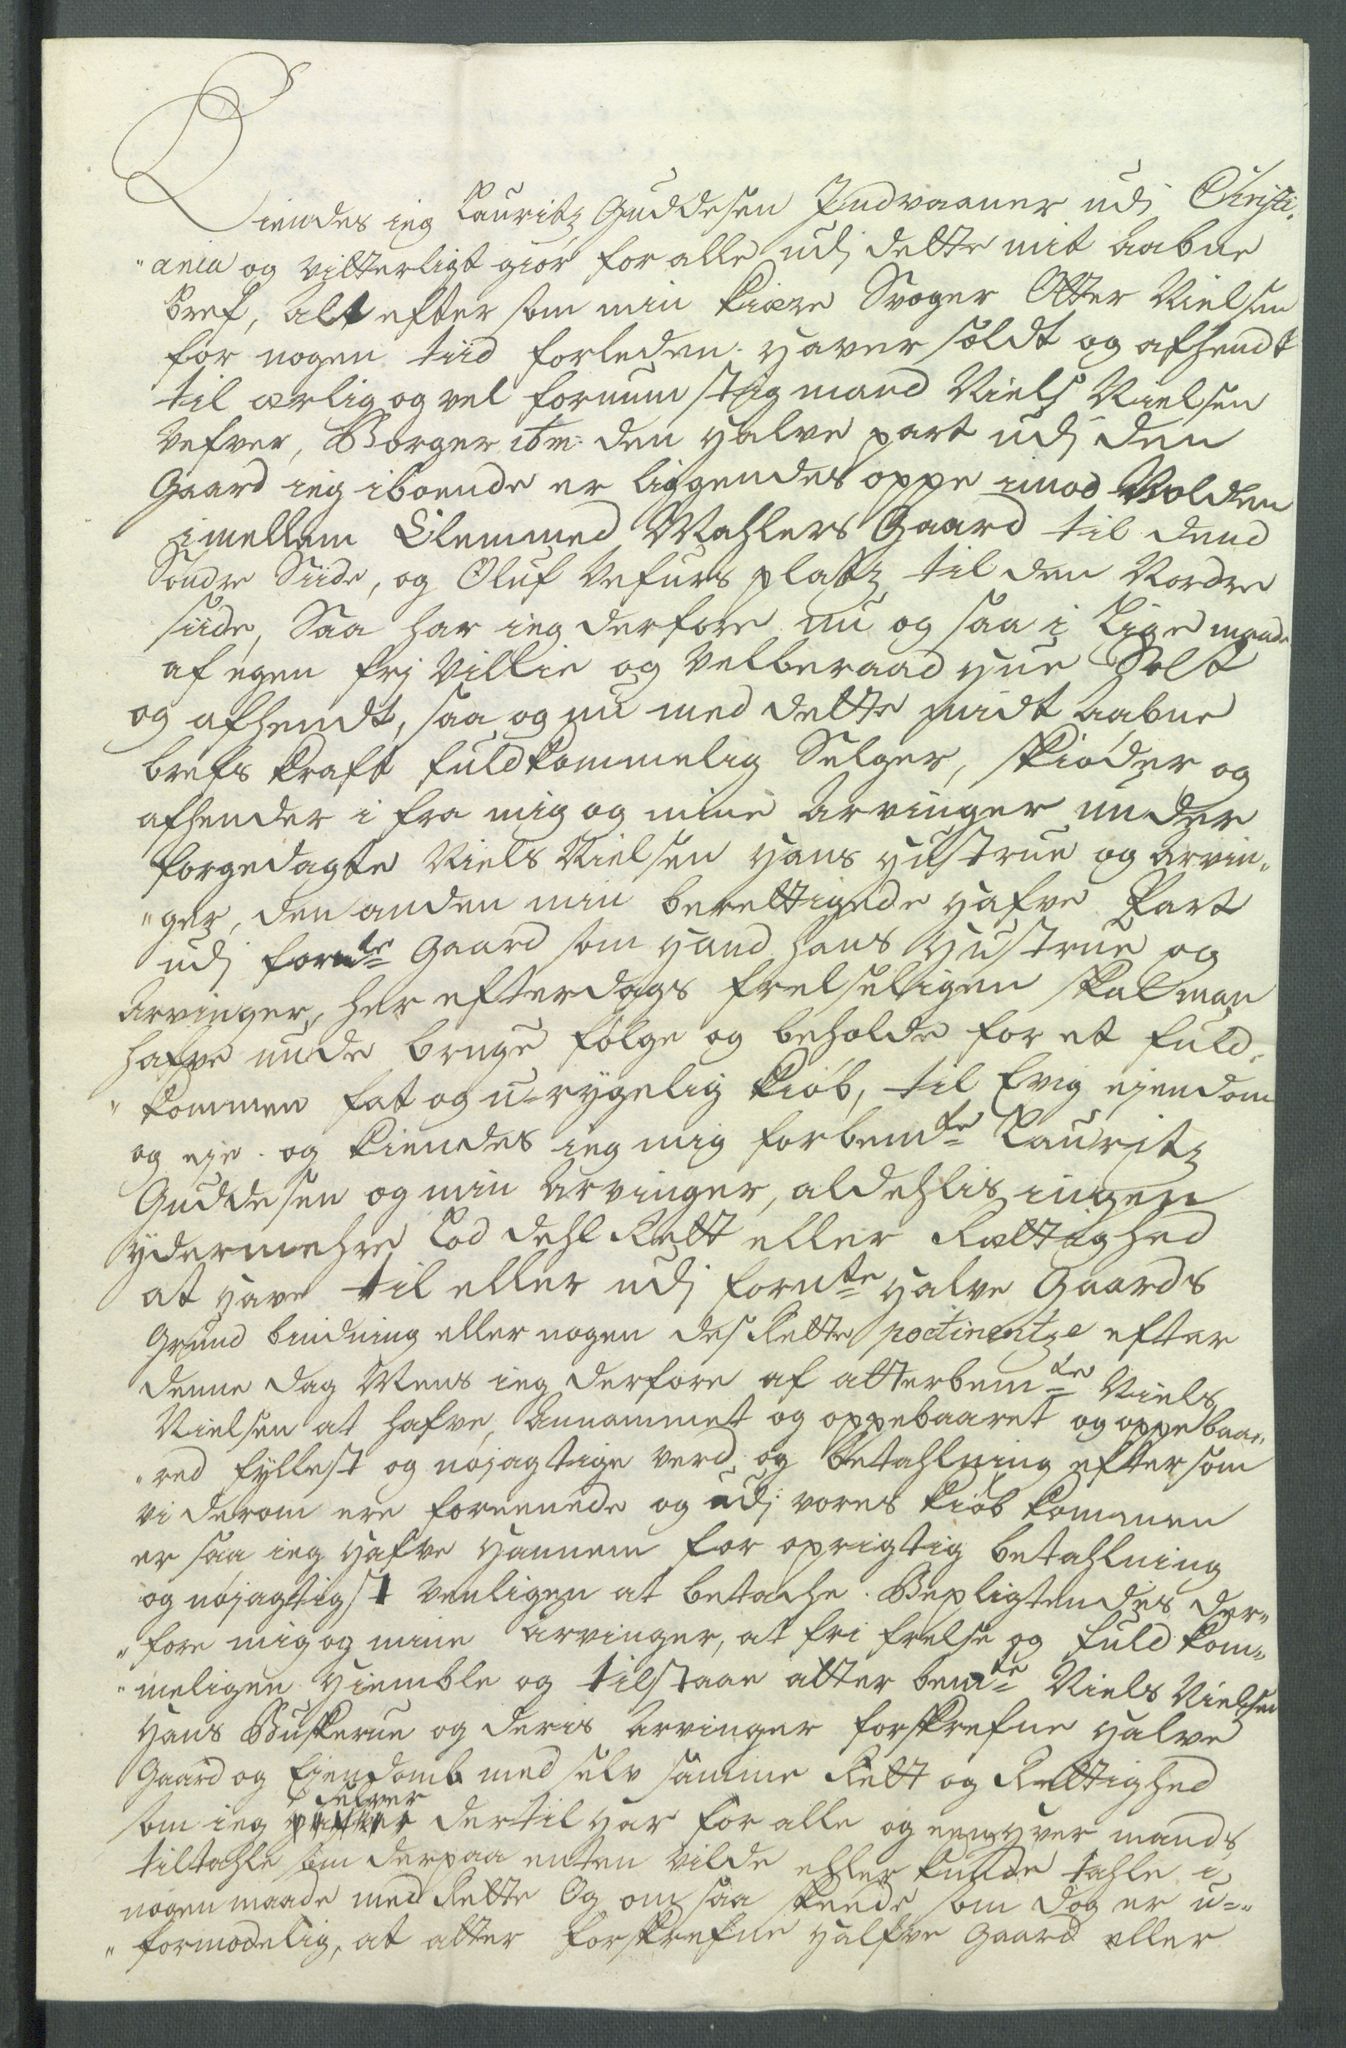 Kiendes ieg Lauritz Guddesen Indvaaner udj Christi„
„ania og vitterligt giør for alle udj dette mit aabne
bref, alt efter som min kiære Svoger Otter Nielsen
for nogen tiid forleden haver soldt og afhendt
til ærlig og vel fornumstig mand Niels Nielsen
Vefver, Borger ibm: den halve part udj den
Gaard ieg iboende er liggendes oppe imod Volden
imellem Clemmed Mahlers Gaard til dend
Søndre Siide, og Oluf Vefvers platz til den Nordre
siide, Saa har ieg derfore nu og saa i lige maade
af egen frj Villie og Velberaad hue Solt
og afhendt, saa og nu med dette midt aabne
brefs kraft fuldkommelig Selger, skiøder og
afhender i fra mig og mine Arvinger under
forgedagte Niels Nielsen hans hustrue og arvin„
„ger, den anden min berettigede hafve Part
udj fornte Gaard som hand hans hustrue og
Arvinger, her efterdags frelseligen skal maa
hafve nyde bruge følge og beholde for et fuld„
„kommen fat og u-rygelig kiøb, til Evig ejendom
og eje. og kiendes ieg mig forbemte Lauritz
Guddesen og min Arvinger, aldehlis ingen
ydermehre Lod dehl Rett eller Rettighed
at have til eller udj fornte halve Gaards
Grund bindning eller nogen des Rette pertinentze efter
denne dag Mens ieg derfore af atterbemte Niels
Nielsen at hafve annammet og oppebaaret og oppebaa„
„red fyllest og nøjagtige verd og betahlning eftersom
vi derom ere foreenede og udj vores kiøb kommen
er saa ieg hafve hannem for oprigtig betahlning
og nøjagtigst venligen at betache. Bepligtendes der„
„fore mig og mine Arvinger, at fri frelse og fuldkom„
„meligen hiemble og tilstaae atter bemte Niels Nielsen
hans Huskerue og deris Arvinger forskrefne halve
Gaard og Eiendomb med selv samme Rett og Rettighed
som ieg selver dertil har for alle og een hver mands
tiltahle som derpaa enten vilde eller kunde tahle i
nogen maade med Rette Og om saa skeede som dog er u„
„formodelig, at atter forskrefne halfve Gaard eller